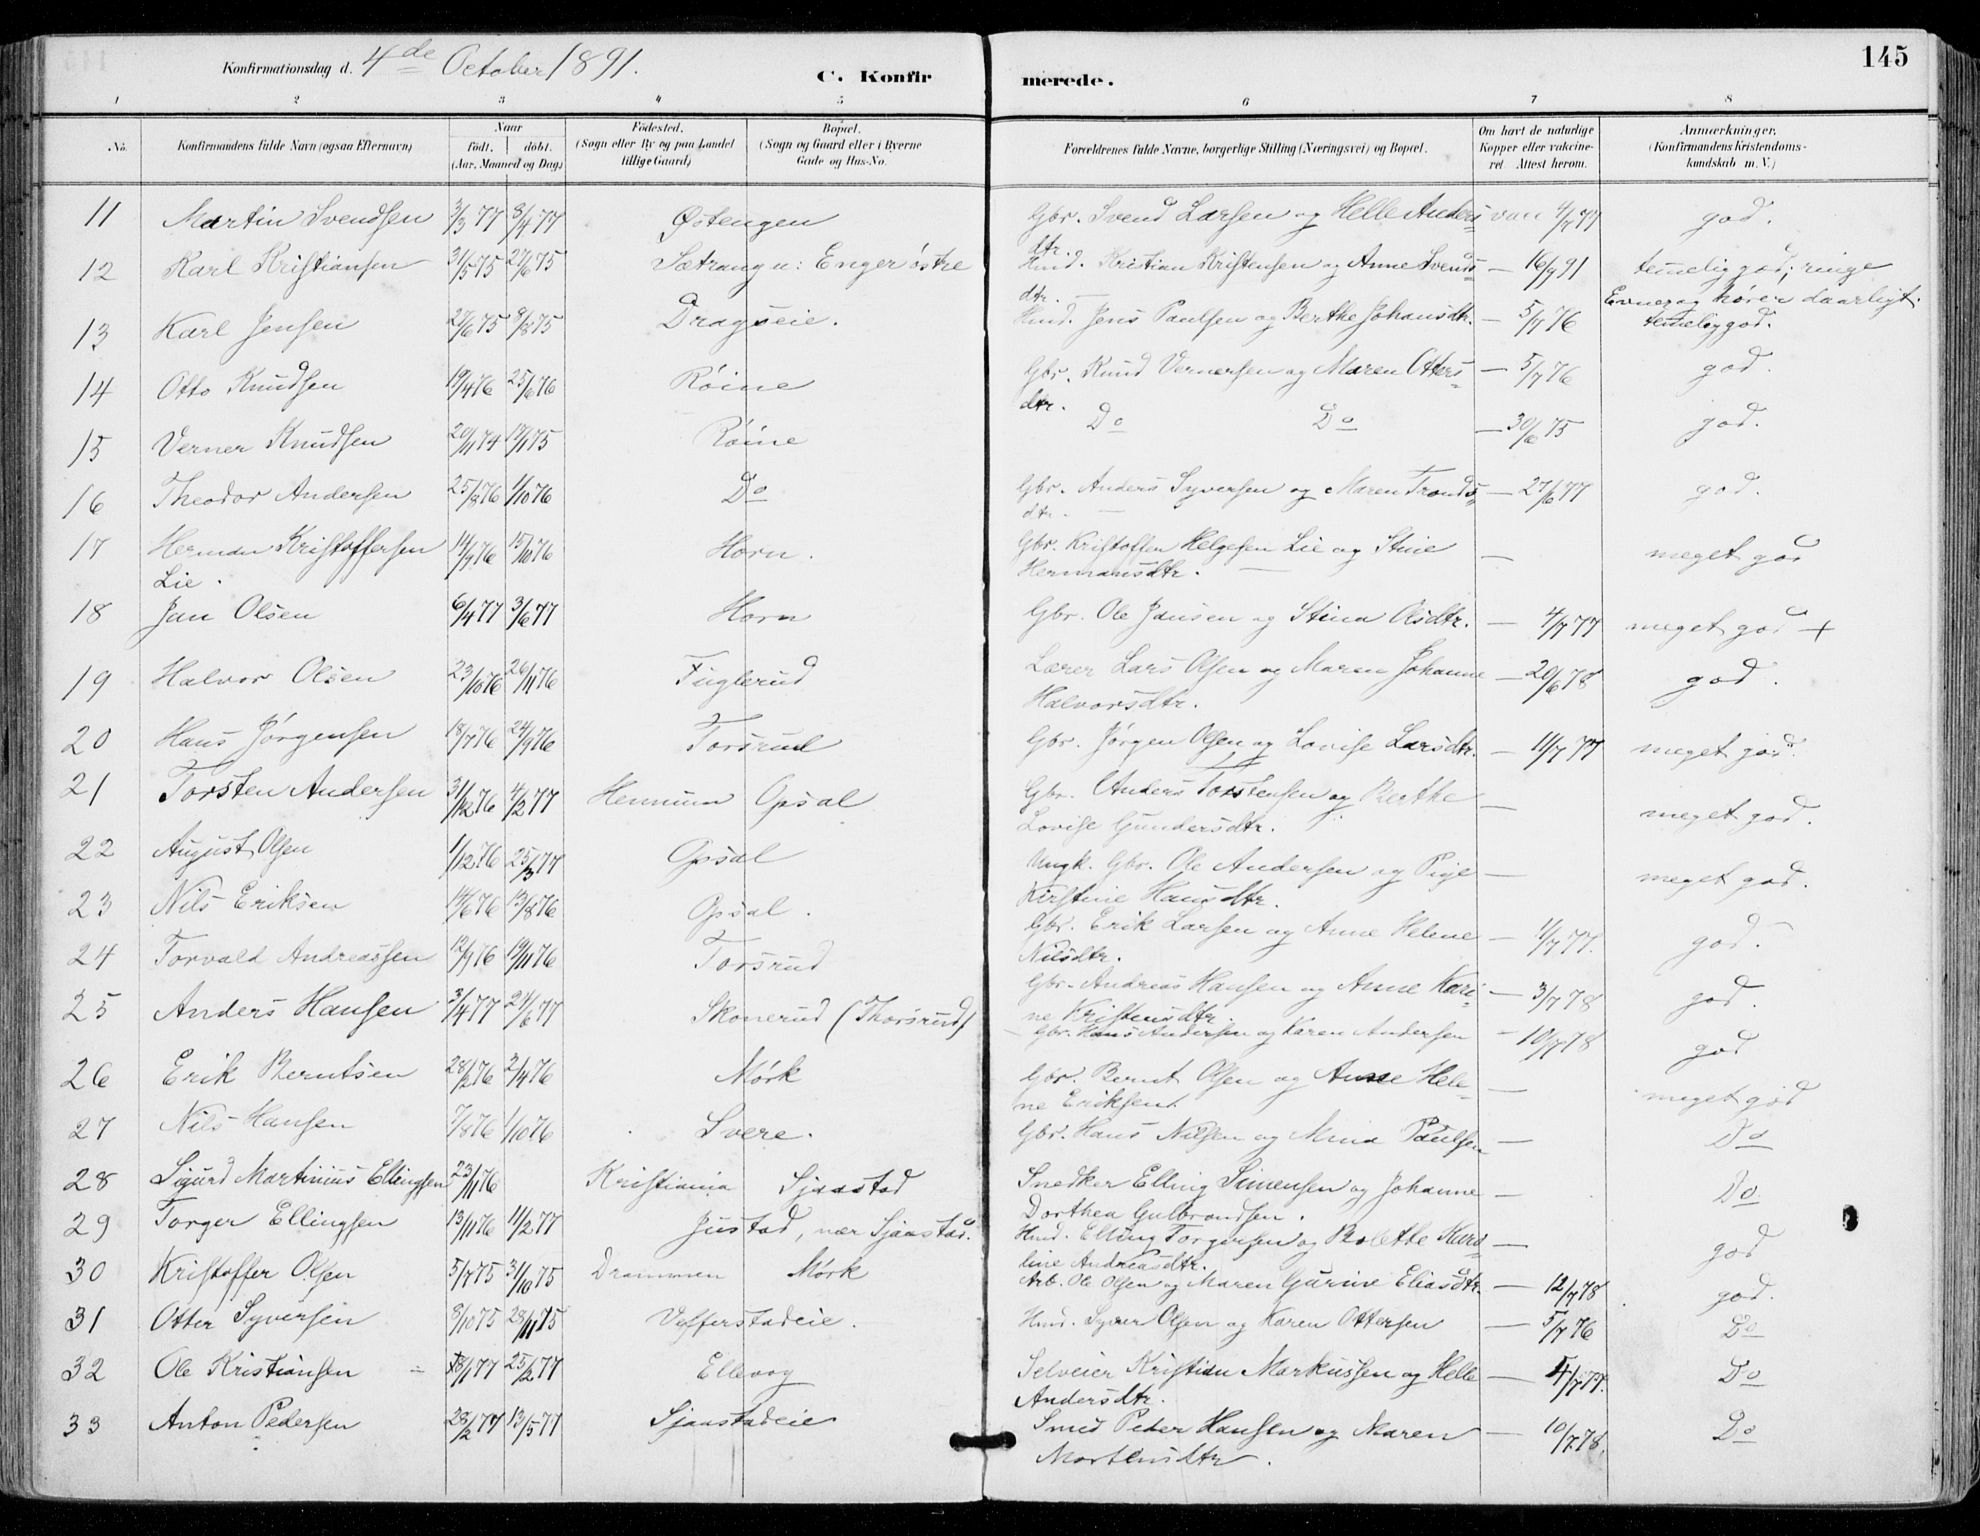 145
Konfirmationsdag d. 4de October 1891.
C. Konfirmerede.
1 2 3 4 5 6 7 8
No. Konfirmandens fulde Navn (ogsaa Efternavn) Naar født. døbt. (Aar, Maaned og Dag) Fødested. (Sogn eller By og paa Landet tillige Gaard) Bopæl. (Sogn og Gaard eller i Byerne Gade og Hus-No. Forældrenes fulde Navne, borgerlige Stilling (Næringsvei) og Bopæl. Om havt de naturlige Kopper eller vakcineret. Attest herom. Anmærkninger. (Konfirmandens Kristendomskundskab m. V.)
11 Martin Svendsen 3/3 77 8/4 77 Østengen Gbr. Svend Larsen og Helle Anders= dtr. vac 4/7 77 god.
12 Karl Kristiansen 31/5 75 27/6 75 Sætrang u: Enger østre Hmd. Kristian Kristensen og Anne Svends= dtr. — 16/9 91 temelig god; ringe Evner og hører daarligt.
13 Karl Jensen 27/6 75 8/8 75 Dragseie. Hmd. Jens Paulsen og Berthe Johansdtr. — 5/7 76 temelig god.
14 Otto Knudsen 19/4 76 25/6 76 Røine Gbr. Knud Vernersen og Maren Otters= dtr. — 5/7 76 god.
15 Verner Knudsen 20/11 74 17/1 75 Røine Do Do — 30/6 75 god.
16 Theodor Andersen 25/8 76 1/10 76 Do Gbr. Anders Syversen og Maren Tronds= dtr. — 27/6 77 god.
17 Herman Kristoffersen Lie. 14/9 76 15/10 76 Horn. Gbr. Kristoffer Helgesen Lie og Stine Hermansdtr. — meget god
18 Jan Olsen 6/4 77 3/6 77 Horn Gbr. Ole Jansen og Stina Olsdtr. — 4/7 77 meget god +
19 Halvor Olsen 23/10 76 26/11 76 Fuglerud Lærer Lars Olsen og Maren Johanne Halvorsdtr. — 20/6 78 god.
20 Hans Jørgensen 18/7 76 24/9 76 Torsrud Gbr. Jørgen Olsen og Lovise Larsdtr. — 11/7 77 meget god.
21 Torsten Andersen 31/12 76 4/2 77 Hennum Opsal Gbr. Anders Torstensen og Berthe Lovise Gundersdtr. — meget god.
22 August Olsen 1/12 76 25/3 77 Opsal Ungk. Gbr. Ole Andersen og Pige Kirstine Hansdtr. — meget god.
23 Nils Eriksen 14/6 76 13/8 76 Opsal. Gbr. Erik Larsen og Anne Helene Nilsdtr. — 11/7 77. god.
24 Torvald Andreassen 12/9 76 19/11 76 Torsrud Gbr. Andreas Hansen og Anne Kari= ne Kristensdtr. — 3/7 78 god.
25 Anders Hansen 3/4 77 24/6 77 Skonerud (Thorsrud) Gbr. Hans Andersen og Karen Andersen — 10/7 78 god
26 Erik Berntsen 28/2 76 2/4 76 Mørk Gbr. Bernt Olsen og Anne Hele= ne Eriksen. — meget god
27 Nils Hansen 7/8 76 1/10 76 Svere. Gbr. Hans Nilsen og Mina Paulsen — Do
28 Sigurd Martinius Ellingsen 23/11 76 Kristiania Sjaastad Snedker Elling Simensen og Johanne Dorthea Gulbrandsen. — Do
29 Torger Ellingsen 13/11 76 11/2 77 Justad, nær Sjaastad. Hmd. Elling Torgersen og Bolette Karo= line Andreasdtr. — god
30 Kristoffer Olsen 5/7 75 31/10 75 Drammen Mørk Arb. Ole Olsen og Maren Gurine Eliasdtr. — 12/7 78 god.
31 Otter Syversen 8/10 75 28/11 75 Vefferstadeie. Hmd. Syver Olsen og Karen Ottersen — 5/7 76 Do
32 Ole Kristiansen 18/1 77 25/2 77 Ellevog Selveier Kristian Markussen og Helle Andersdtr. — 4/7 77. Do
33 Anton Pedersen 28/2 77 13/5 77 Sjaastadeie Smed Peder Hansen og Maren Mortensdtr. — 10/7 78. Do